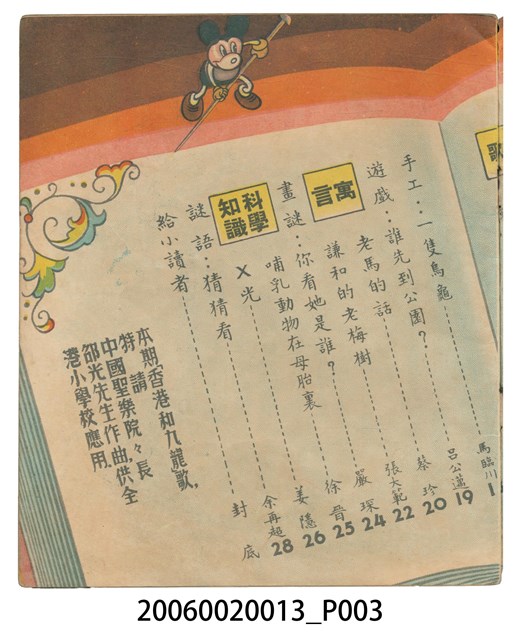 手工：一隻烏龜 馬臨川
遊戲：誰先到公園？ 呂公邁 19
寓言
老馬的話 蔡珍 20
謙和的老梅樹 張大範 22
畫謎：你看她是誰？ 嚴琛 24
科學知識
哺乳動物在母胎裏 徐晋 25
X光 姜隱 26
謎語：猜猜看 余再超 28
給小讀者 封底
本期香港和九龍歌，
特請
中國聖樂院々長
邵光先生作曲供全
港小學校應用．
20060020013_P003